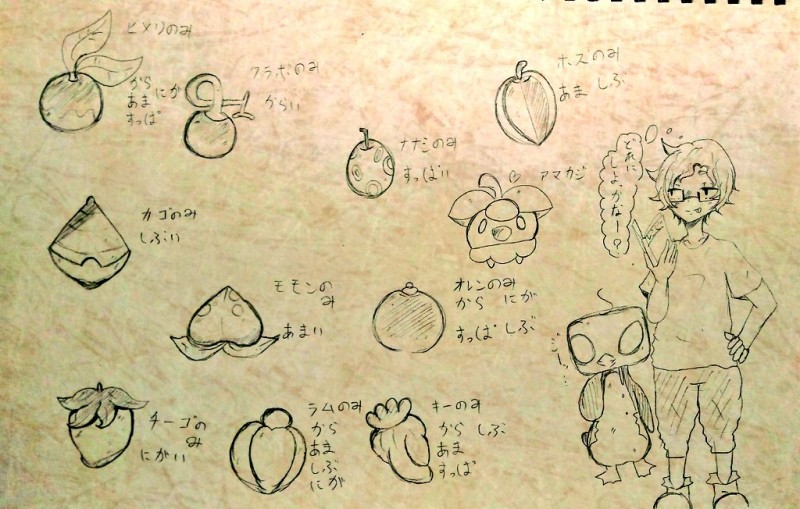 ヒメリのみ
から
あま にが
すっぱ
クラボのみ
からい
ホズのみ
あま しぶ
ナナシのみ
すっぱい
アマカジ
どれに
しよっかなー?
カゴのみ
しぶい
モモンの
み
あまい
オレンのみ
から にが
すっぱ しぶ
チーゴの
み
にがい
ラムのみ
から
あま
しぶ
にが
キーのみ
から しぶ
あま
すっぱ
じー…